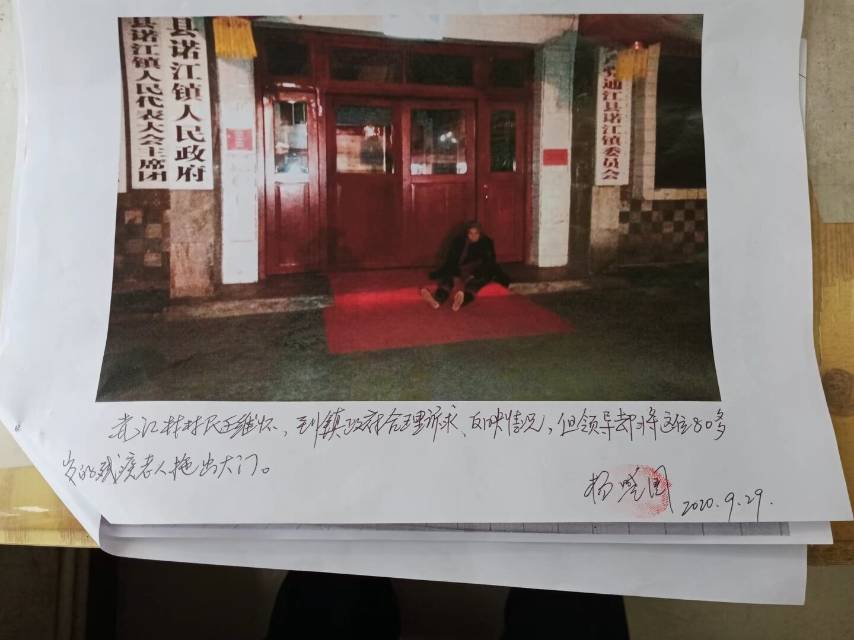 县诺江镇人民代表大会主席团
县诺江镇人民政府
通江县诺江镇委员会
江村村民王维怀，到镇政府合理诉求、反映情况，但领导却将这位80多
岁的残疾老人拖出大门。
杨
2020.9.29.